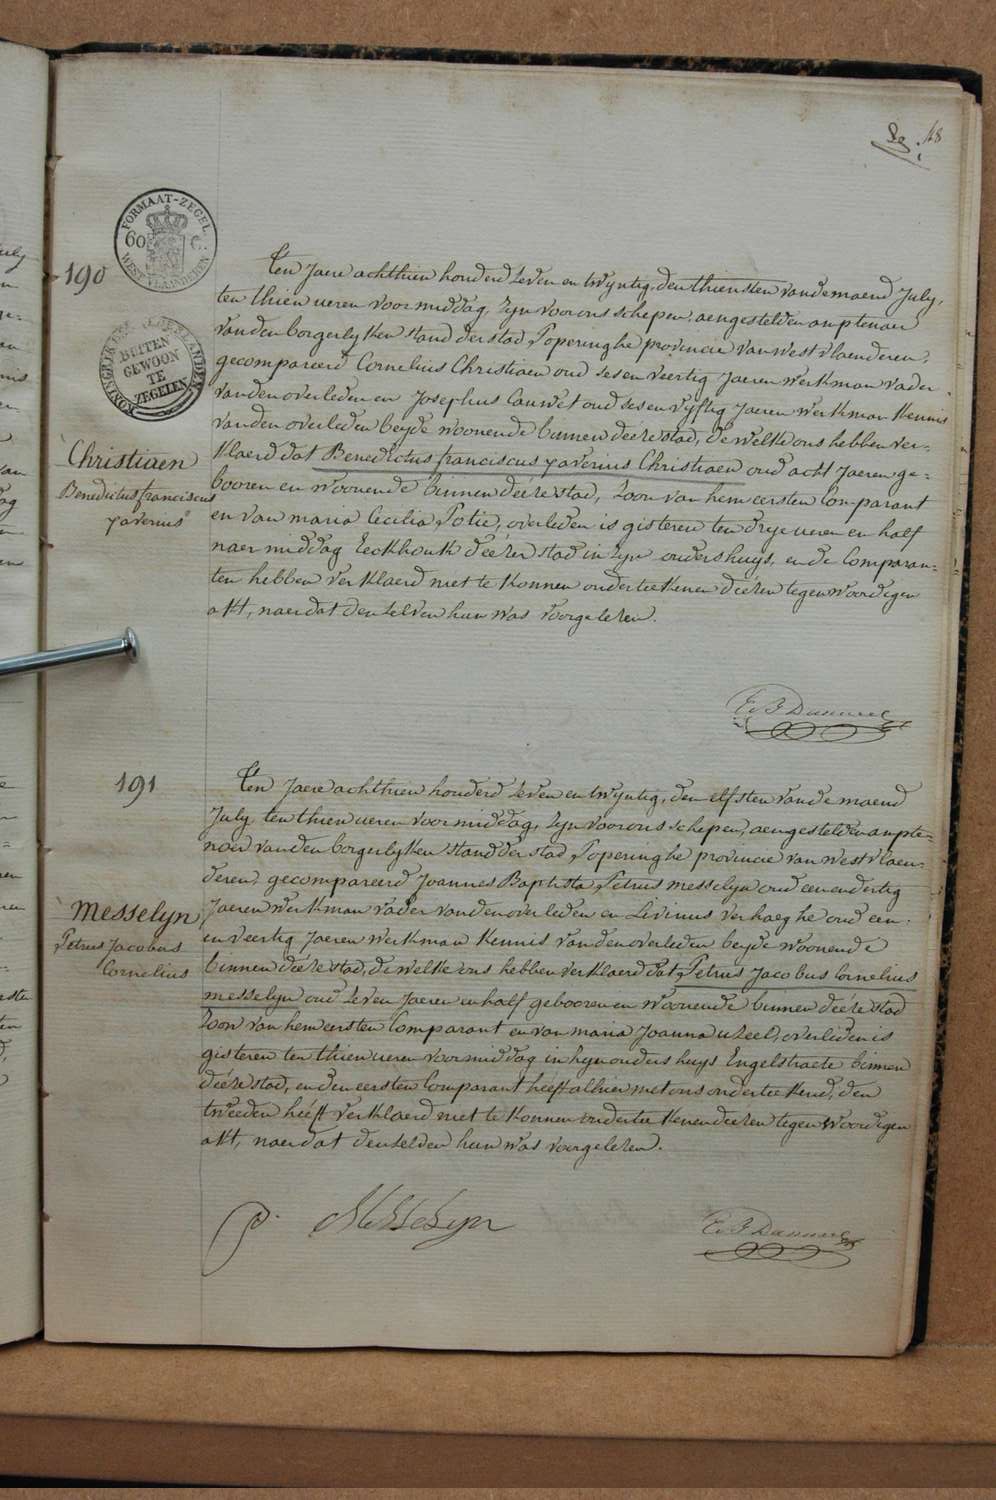 48
FORMAAT-ZEGEL
60 C:
WEST-VLAANDEREN
KONINGRIJK DER NEDERLANDEN
BUITEN
GEWOON
TE
ZEGELEN
190
Christiaen
Benedictus franciscus
xaverius
Ten Jaere achthien honderd Zeven en twyntig, den thiensten vande maend July,
ten thien ueren voormiddag, Zyn voor ons schepen, aengestelden amptenaer
vanden borgerlyken stand der stad Poperinghe provincie van westvlaenderen,
gecompareerd Cornelius Christiaen oud ses en veertig Jaeren werkman vader
vanden overleden en Josephus Cauwet oud ses en vyftig Jaeren werkman Kennis
vanden overleden beyde woonende binnen deéze stad, de welke ons hebben ver-
klaerd dat Benedictus franciscus xaverius Christiaen oud acht Jaeren ge-
booren en woonende binnen deéze stad, Zoon van hem eersten Comparant
en van maria Cecilia Potie, overleden is gisteren ten drye ueren en half
naermiddag Eeckhoutk deézer stad in Zyn ouders huys, en de Comparan-
ten hebben verklaerd niet te konnen onderteekenen deézen tegenwoordigen
akt, naer dat den Zelven hun was voorgelezen.
191
Messelyn
Petrus Jacobus
Cornelius
Ten Jaere achthien honderd Zeven en twyntig, den elfsten vande maend
July, ten thien ueren voormiddag, Zyn voor ons schepen, aengestelden ampte-
naer vanden borgerlyken stand der stad Poperinghe provincie van westvlaen-
deren, gecompareerd Joannes Baptista Petrus messelyn oud een en dertig
Jaeren werkman vader vanden overleden en Livinus verhaeghe oud een
en veertig Jaeren werkman Kennis vanden overleden beyde woonende
binnen deéze stad, de welke ons hebben verklaerd dat Petrus Jacobus Cornelius
messelyn oud Zeven Jaeren en half gebooren en woonende binnen deéze stad
Zoon van hem eersten Comparant en van maria Joanna uzeel, overleden is
gisteren ten thien ueren voormiddag in Zyn ouders huys Engelstraete binnen
deéze stad, en den eersten Comparant heéft alhier met ons onderteekend, den
tweeden heéft verklaerd niet te konnen onderteekenen deezen tegenwoordigen
akt, naer dat den Zelven hun was voorgelezen.
Messelyn